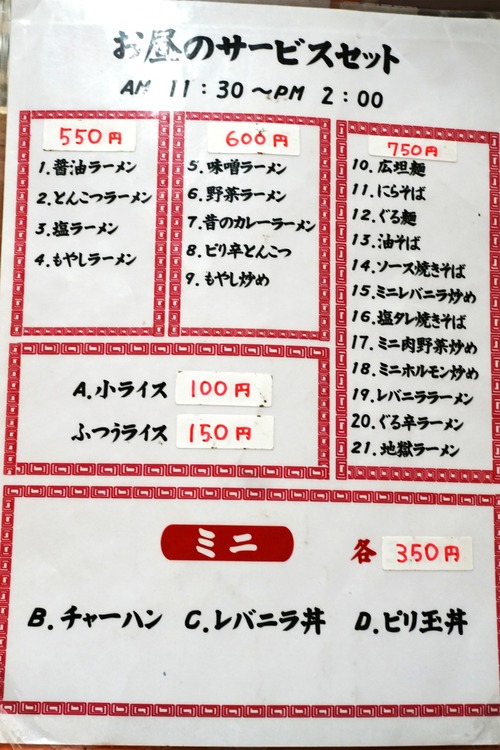 お昼のサービスセット
AM 11：30～PM 2：00
550円
1.醤油ラーメン
2.とんこつラーメン
3.塩ラーメン
4.もやしラーメン
600円
5.味噌ラーメン
6.野菜ラーメン
7.昔のカレーラーメン
8.ピリ辛とんこつ
9.もやし炒め
750円
10.広坦麺
11.にらそば
12.ぐる麺
13.油そば
14.ソース焼きそば
15.ミニレバニラ炒め
16.塩タレ焼きそば
17.ミニ肉野菜炒め
18.ミニホルモン炒め
19.レバニララーメン
20.ぐる辛ラーメン
21.地獄ラーメン
A.小ライス 100円
ふつうライス 150円
ミニ 各 350円
B.チャーハン C.レバニラ丼 D.ピリ玉丼